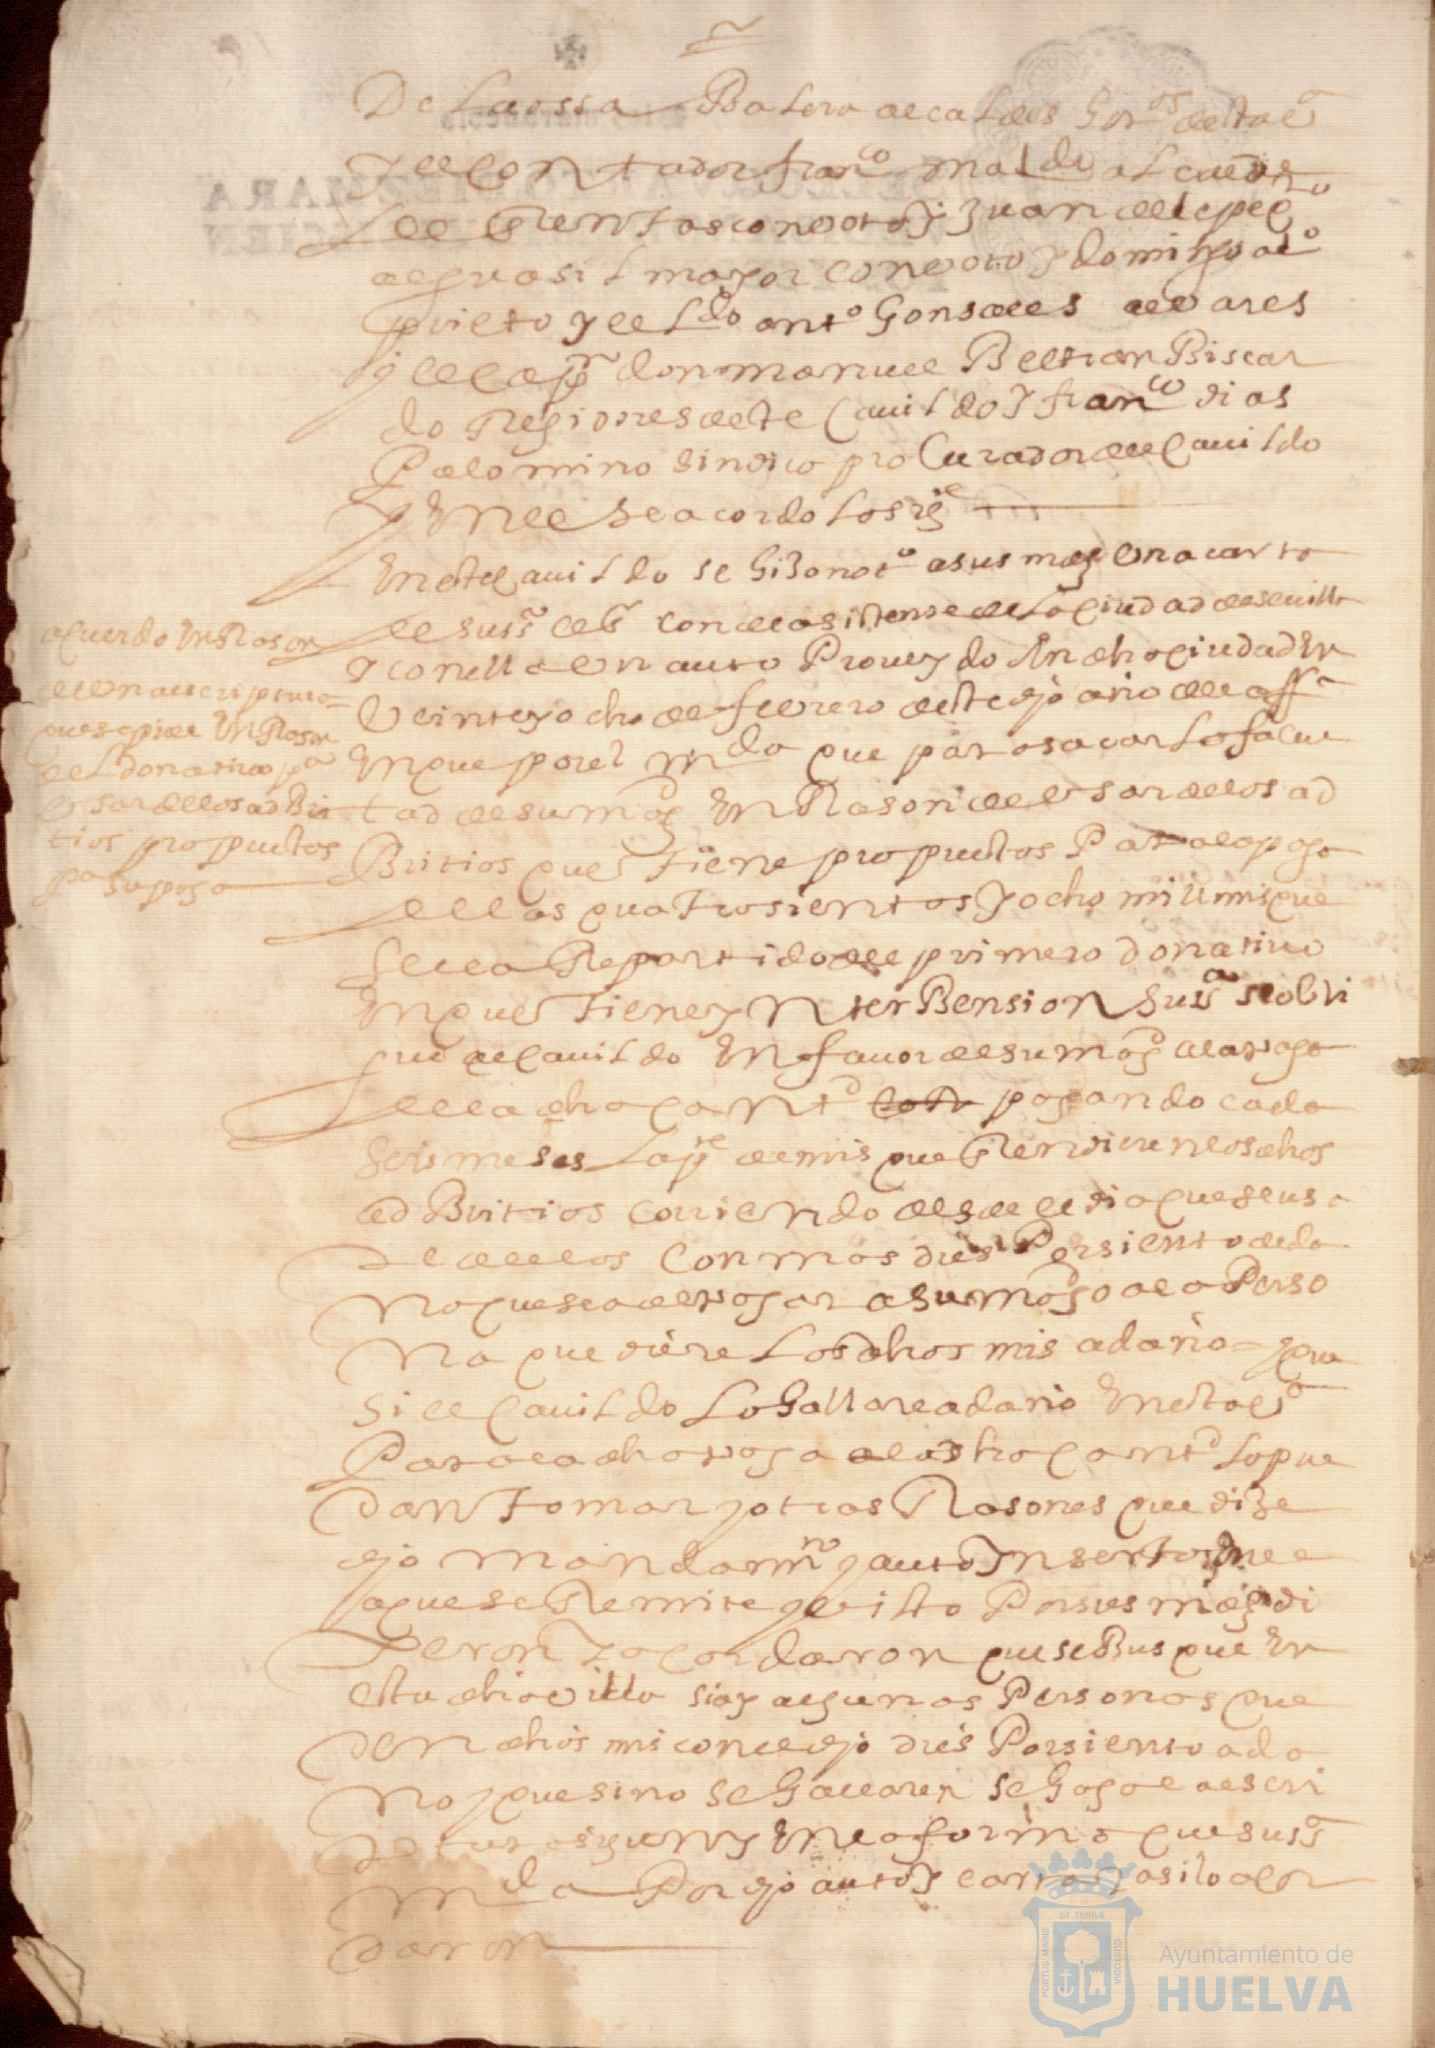 De la ossa Balera alcaldes hordos desta va
y el contador franco maldo alcalde
de las Rentas con voto y Juan de lepe
alguasil mayor con voto y domingo alo
prieto y el Ldo anto Gonsales albares
y el cappn don manuel Beltran Biscar
do Regidores deste Cauildo y franco dias
Palomino sindico proCurador del Cauildo
y En el se acordo lo sigte
En este cauildo se hizo noto a sus mds una carta
de su sa el sr conde asistente de la ciudad de seuilla
y con ella un auto Proueydo En dha ciudad En
Veinte y ocho de febrero deste dho año de la ffa
En que por el mda que para sacar la facul
tad de su magd En Rason de el usar de los ad
Britios questiene propuestos Para la paga
de las quatrosientos y ocho mill mrs que
se le a Repartido del primero donatiuo
En questiene ynterBension su sa se obli
gue el Cauildo En fauor de su magd a la paga
de la dha cantd pagando cada
seis meses La pte de mrs que Rendieren los dhos
adBritios corriendo desde el dia que se usa
de ellos con mas dies Por siento de da
ño que sea de pagar a su magd o a la Perso
na que diere Los dhos mrs a daño y que
si el Cauildo Lo hallare a daño En esta va
Para la dha paga de la dha cantd lo pue
dan tomar y otras Rasones que dize
dho mandamto y auto Inserto En el
a que se Remite y visto Por sus mds di
jeron y acordaron que se Busque En
esta dha villa si ay algunas Personas que
den dhos mrs con el dho dies Por siento de da
ño y que si no se hallaren se haga la escri
ptura sigun y En la forma que su sa
mda Por dho auto y carta y asi lo acor
daron
acuerdo En Rason
de una escriptura
que se pide En Rason
del donatiuo pa
usar de los adBri
tios propuestos
pa su paga
PORTUS MARIS
ET TERRÆ
CUSTODIA
Ayuntamiento de
HUELVA